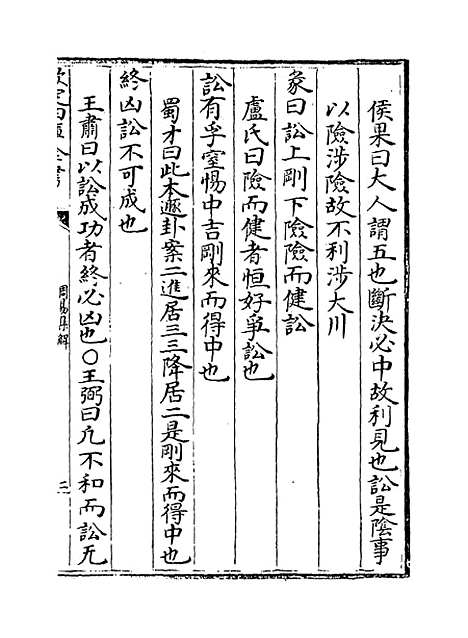 侯果曰大人謂五也斷決必中故利見也訟是陰事
以險涉險故不利涉大川
彖曰訟上剛下險險而健訟
盧氏曰險而健者恒好爭訟也
訟有孚窒惕中吉剛來而得中也
蜀才曰此本遯卦案二進居三三降居二是剛來而得中也
終凶訟不可成也
王肅曰以訟成功者終必凶也○王弼曰凡不和而訟无
欽定四庫全書
周易集解
三